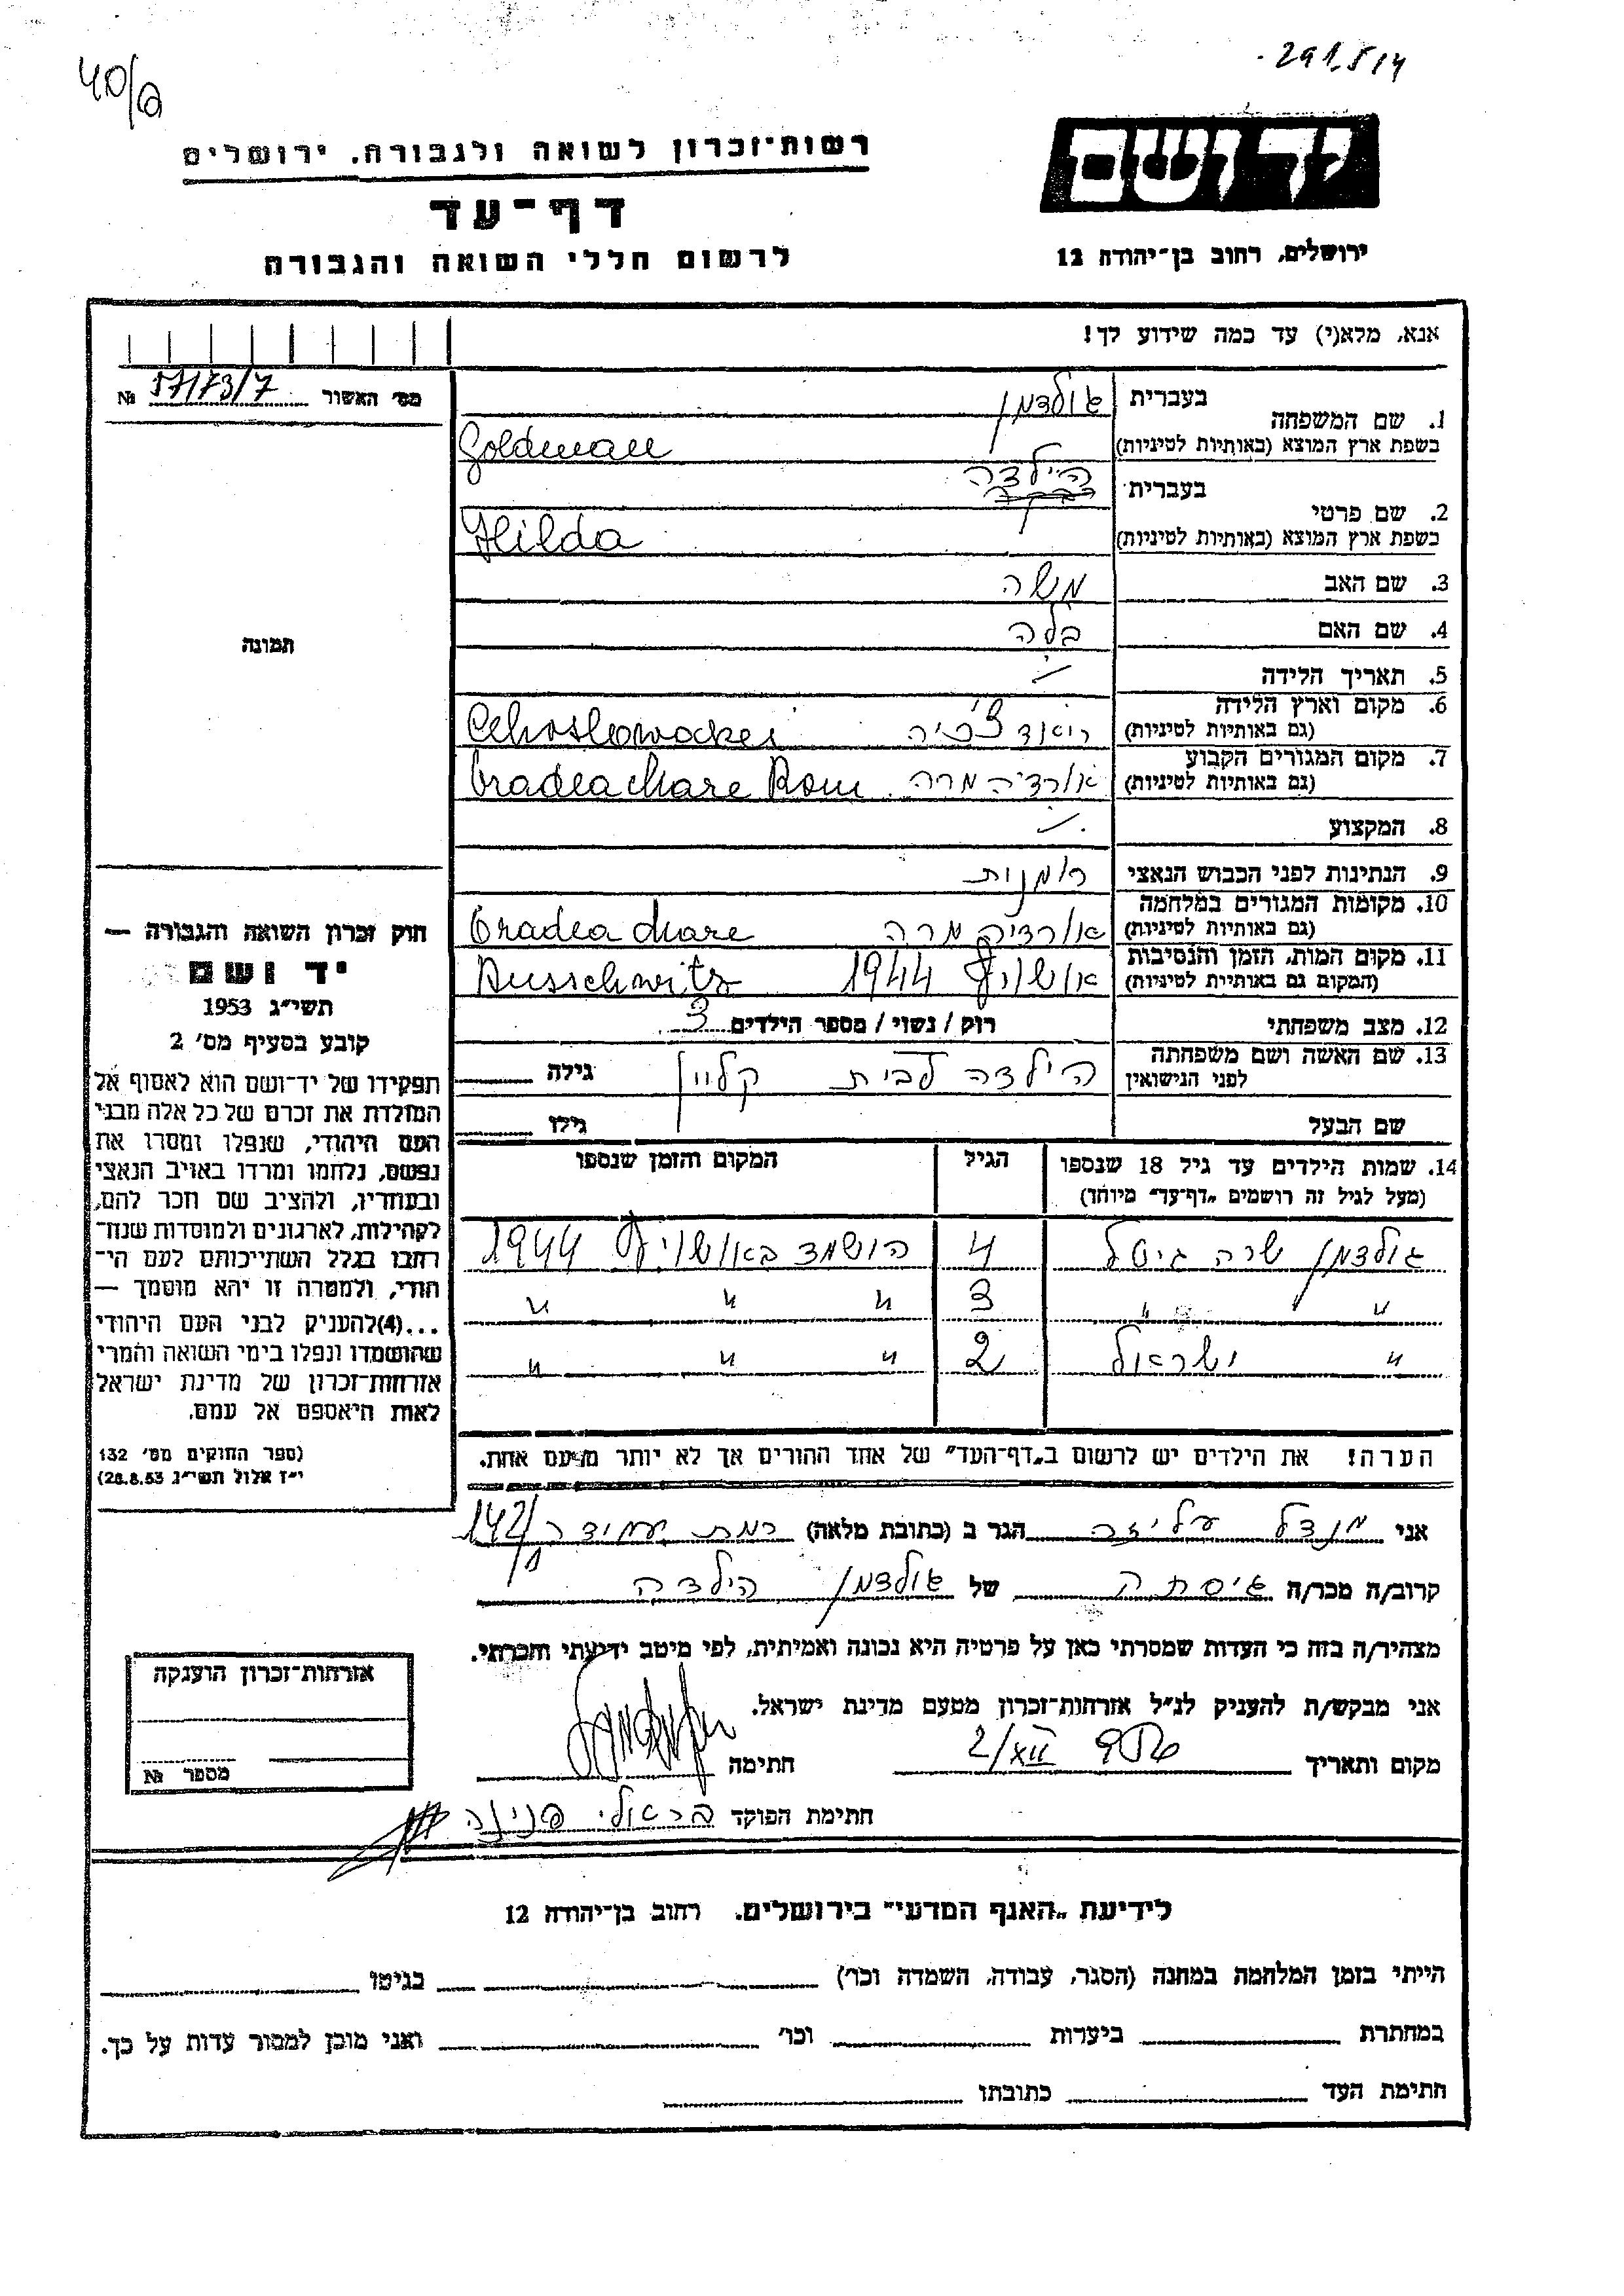 291514
40/a
יד ושם
רשות־זכרון לשואה ולגבורה. ירושלים
דף־עד
לרשום חללי השואה והגבורה
ירושלים, רחוב בן־יהודה 12
אנא, מלא(י) עד כמה שידוע לך!
מס׳ האשור 57173/7 №
תמונה
1. שם המשפחה בעברית גולדמן
בשפת ארץ המוצא (באותיות לטיניות) Goldman
2. שם פרטי בעברית הילדה
בשפת ארץ המוצא (באותיות לטיניות) Hilda
3. שם האב משה
4. שם האם בלה
5. תאריך הלידה
6. מקום וארץ הלידה
(גם באותיות לטיניות) Cehoslowackei
7. מקום המגורים הקבוע
(גם באותיות לטיניות) אורדיה מרה Oradea Mare Rom
8. המקצוע
9. הנתינות לפני הכבוש הנאצי רומנית
10. מקומות המגורים במלחמה
(גם באותיות לטיניות) אורדיה מרה Oradea Mare
11. מקום המות, הזמן והנסיבות
(המקום גם באותיות לטיניות) אושויץ 1944 Ausschwitz
12. מצב משפחתי רוק / נשוי / מספר הילדים 3
13. שם האשה ושם משפחתה
לפני הנישואין הילדה לבית קליין גילה
שם הבעל גילו
14. שמות הילדים עד גיל 18 שנספו הגיל המקום והזמן שנספו
(מעל לגיל זה רושמים „דף־עד״ מיוחד)
גולדמן שרה גיטל 4 הושמד באושויץ 1944
״ ״ 3 ״ ״ ״
״ ישראל 2 ״ ״ ״
הערה! את הילדים יש לרשום ב„דף־העד״ של אחד ההורים אך לא יותר מפעם אחת.
חוק זכרון השואה והגבורה —
יד ושם
תשי״ג 1953
קובע בסעיף מס׳ 2
תפקידו של יד־ושם הוא לאסוף אל
המולדת את זכרם של כל אלה מבני
העם היהודי, שנפלו ומסרו את
נפשם, נלחמו ומרדו באויב הנאצי
ובעוזריו, ולהציב שם וזכר להם,
לקהילות, לארגונים ולמוסדות שנח־
רבו בגלל השתייכותם לעם הי־
הודי, ולמטרה זו יהא מוסמך —
...(4)להעניק לבני העם היהודי
שהושמדו ונפלו בימי השואה והמרי
אזרחות־זכרון של מדינת ישראל
לאות היאספם אל עמם.
(ספר החוקים מס׳ 132
י״ז אלול תשי״ג 28.8.53)
אני מנדל עליזה הגר ב (כתובת מלאה) רמת עמידר 142/1
קרוב/ה מכר/ה גיסתה של גולדמן הילדה
מצהיר/ה בזה כי העדות שמסרתי כאן על פרטיה היא נכונה ואמיתית, לפי מיטב ידיעתי והכרתי.
אני מבקש/ת להעניק לנ״ל אזרחות־זכרון מטעם מדינת ישראל.
מקום ותאריך 2/XII 956 חתימה
חתימת הפוקד בראולי פנינה
אזרחות־זכרון הוענקה
מספר №
לידיעת „האגף המדעי״ בירושלים. רחוב בן־יהודה 12
הייתי בזמן המלחמה במחנה (הסגר, עבודה, השמדה וכו׳) בגיטו
במחתרת ביערות וכו׳ ואני מוכן למסור עדות על כך.
חתימת העד כתובתו